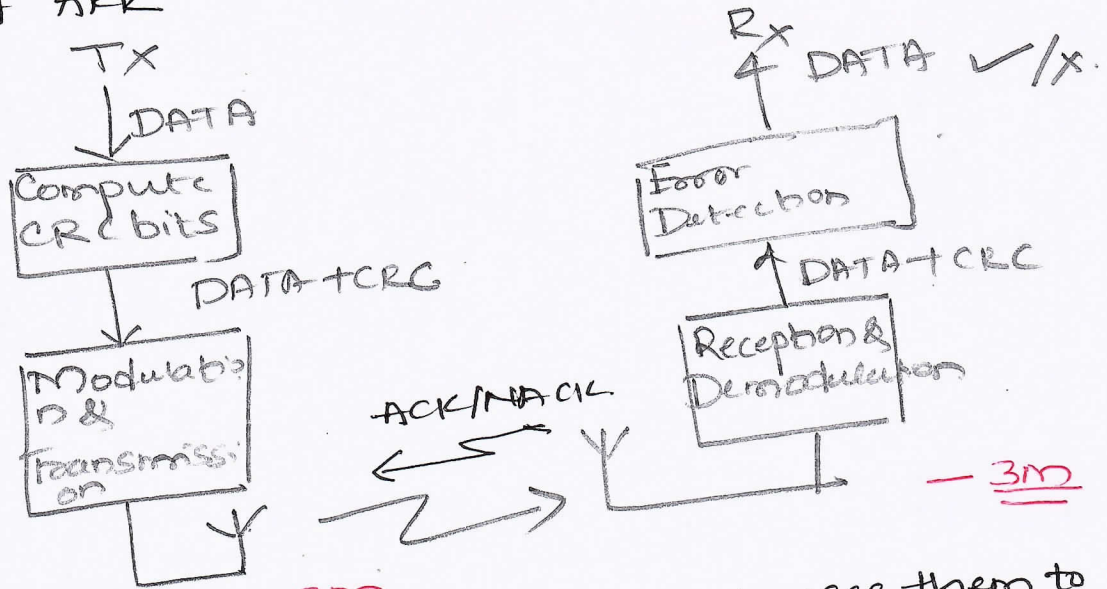 ARR
TX
DATA
Compute
CRC bits
DATA+CRC
Modulatio
n &
Transmissi
on
ACK/NACK
Rx
DATA ✓/x.
Error
Detection
DATA+CRC
Reception &
Demodulation
— 3m
them to